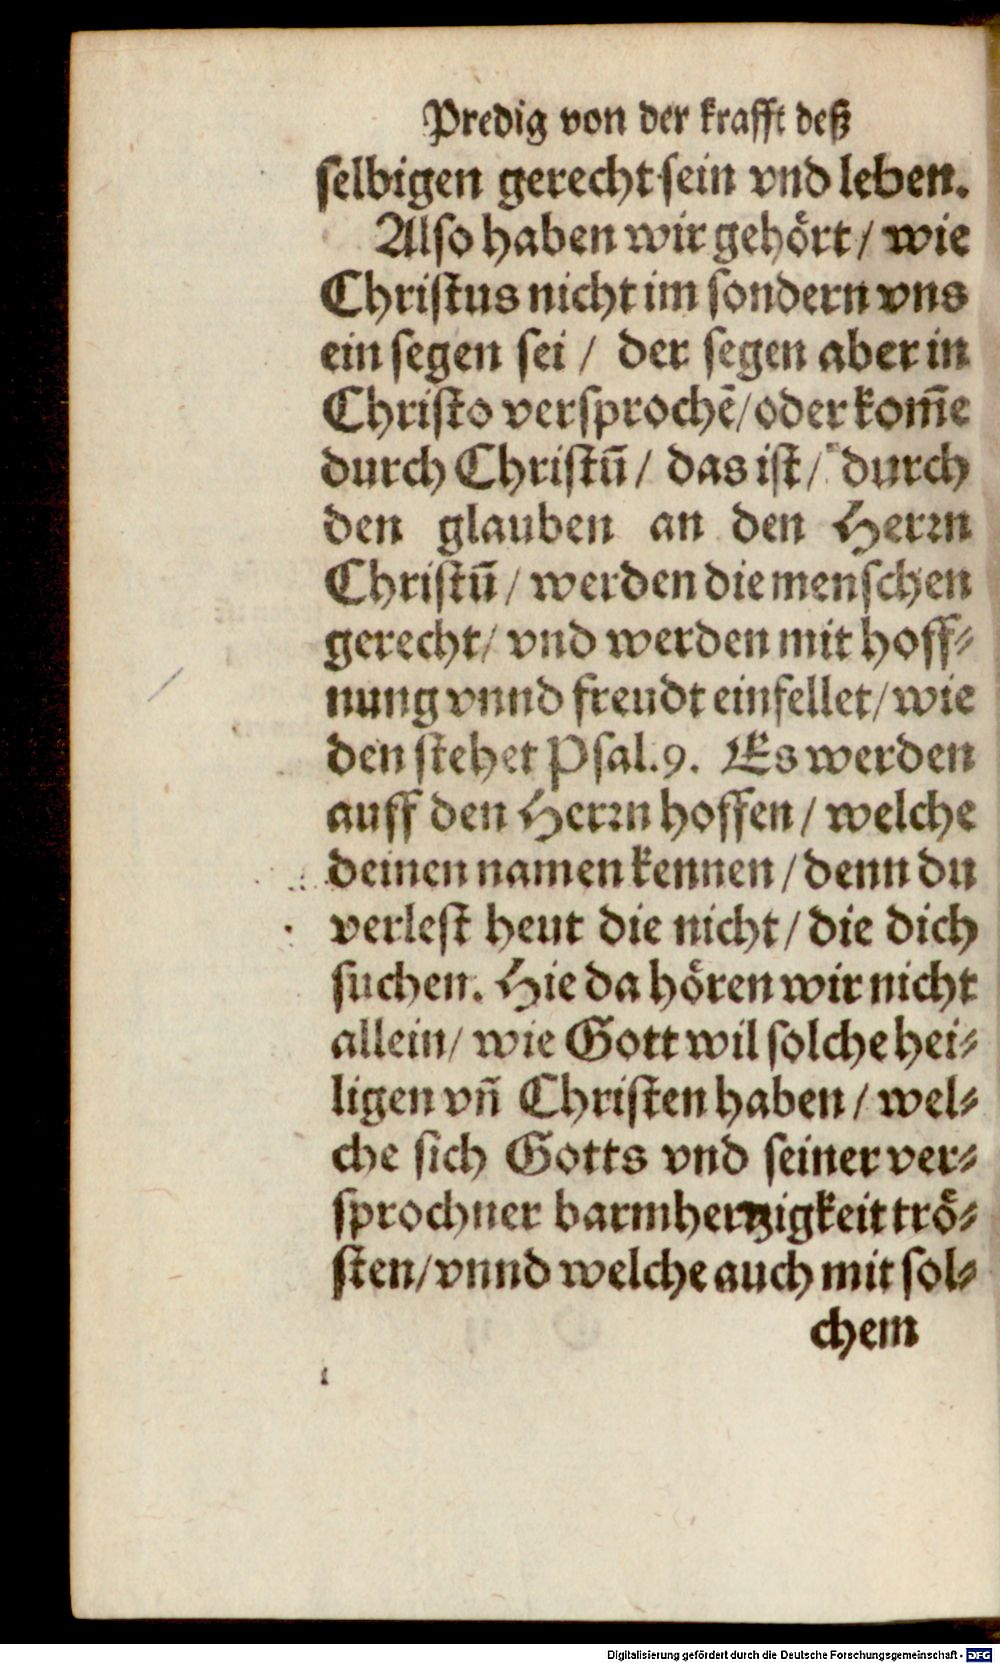 Predig von der krafft deß
selbigen gerecht sein vnd leben.
Also haben wir gehört / wie
Christus nicht im sondern vns
ein segen sei / der segen aber in
Christo versprochẽ / oder kom̃e
durch Christũ / das ist / durch
den glauben an den Herrn
Christũ / werden die menschen
gerecht / vnd werden mit hoff⸗
nung vnnd freudt einfellet / wie
den stehet Psal. 9. Es werden
auff den Herrn hoffen / welche
deinen namen kennen / denn du
verlest heut die nicht / die dich
suchen. Hie da hören wir nicht
allein / wie Gott wil solche hei⸗
ligen vñ Christen haben / wel⸗
che sich Gotts vnd seiner ver⸗
sprochner barmhertzigkeit trö⸗
sten / vnnd welche auch mit sol⸗
chem
Digitalisierung gefördert durch die Deutsche Forschungsgemeinschaft - DFG